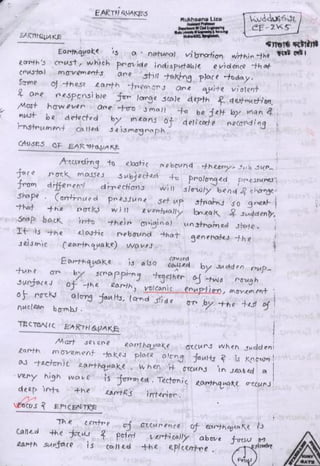 EARTHQUAKES
Rukhsana Liza
EARTHQUAKE
Earthquake is a natural vibration within the
earth's crust, which provide indisputable evidence that
crustal movements are still taking place today.
Some of these earth tremors are quite violent
& are responsible for large scale depth & destruction.
Most however are too small to be felt by man &
must be detected by means of delicate recording
instrument called seismograph.
CAUSES OF EARTHQUAKE
According to elastic rebound theory, sub sur-
face rock masses subjected to prolonged pressures
from different directions will slowly bend & change
shape. Continued pressure set up strains so great
that the rocks will eventually break & suddenly
snap back into their original unstrained state.
It is the elastic rebound that generates the
seismic (earthquake) waves.
caused
Earthquake is also by sudden erup-
ture or by scrapping together of two rough
surfaces of the earth, volcanic eruption, movement
of rocks along faults, land slide or by the test of
nuclear bombs.
TECTONIC EARTHQUAKE
Most severe earthquake occurs when sudden
earth movement takes place along faults & is known
as tectonic earthquake. When it occurs in seabed a
very high wave is formed. Tectonic earthquake occurs
deep into the earth's interior.
FOCUS & EPICENTRE
The centre of occurence of earthquake is
called the focus & point vertically above focus on
earth surface is called the epicentre.